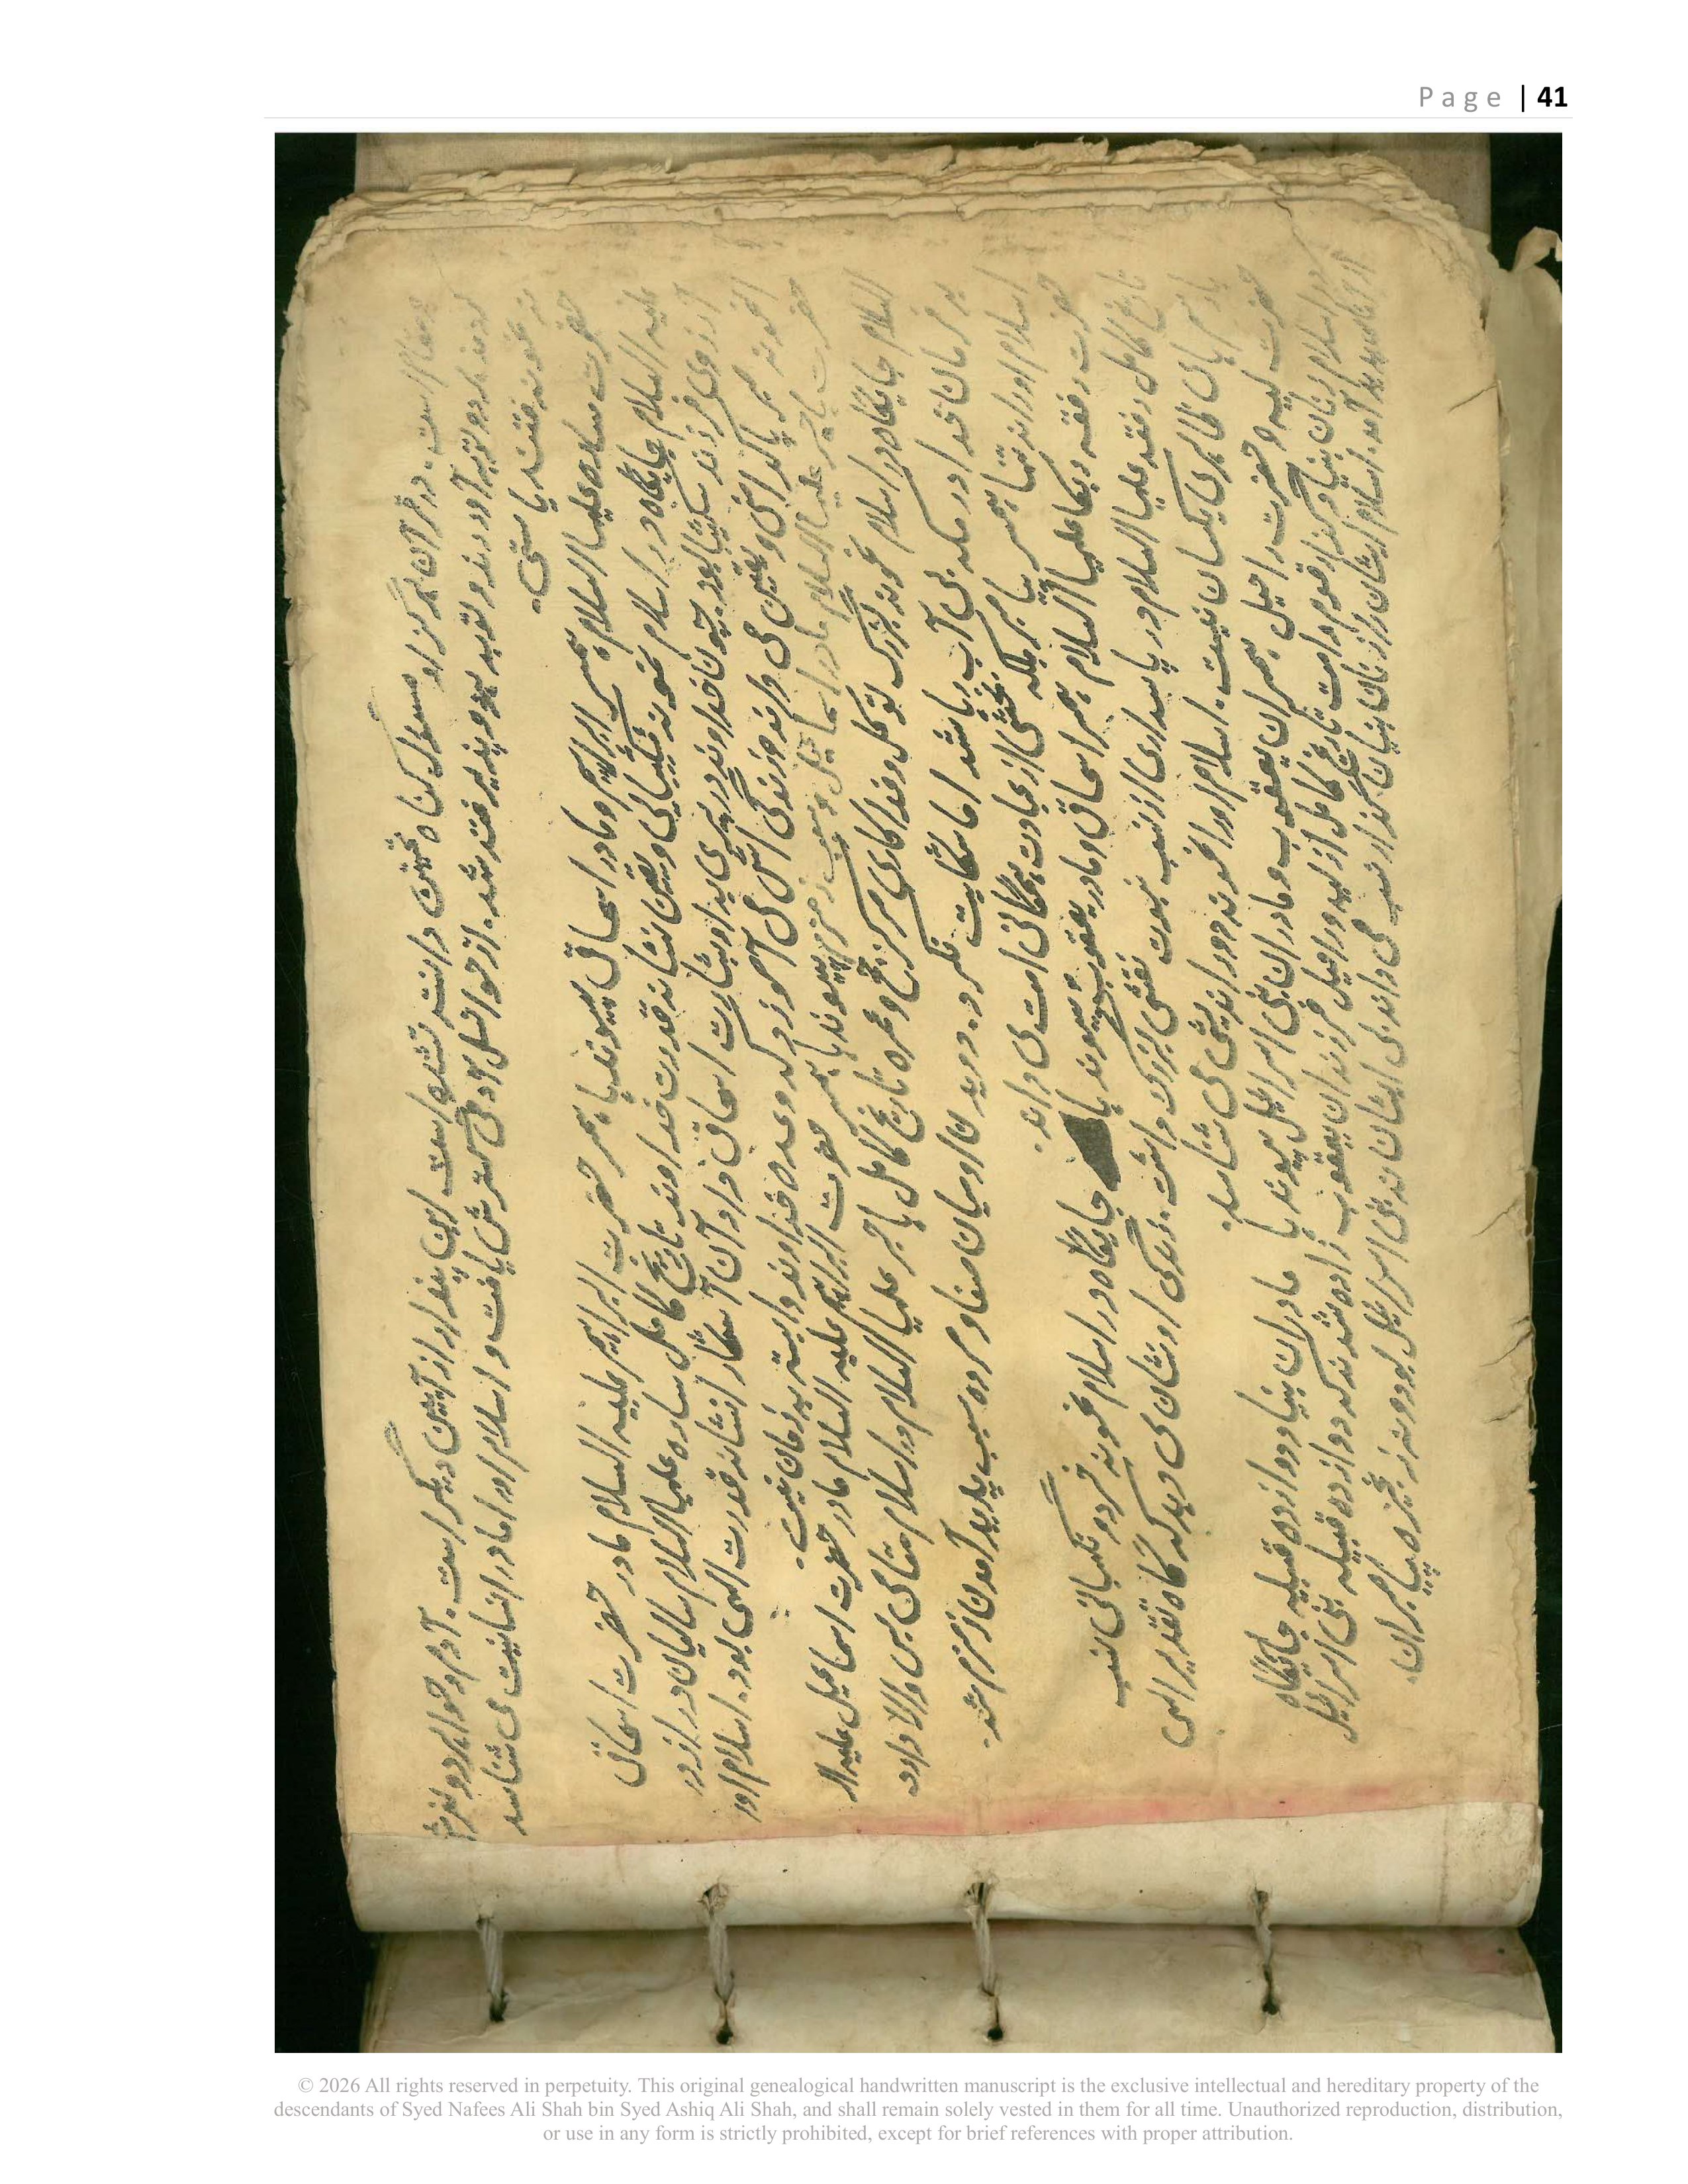 مقام است. در قرآن هرگز او مسئول گناه نخستین دانسته نشده است این پندار از آیین دیگر است. آدم و حوا هر دو لغزش
کردند هر دو توبه آوردند و توبه هر دو پذیرفته شد. از حوا نسل آدمی گسترش یافت و اسلام او را مادر انسانیت می شناسد
نه نمونه فتنه یا سستی.
حضرت ساره علیها السلام همسر ابراهیم و مادر اسحاق پیوند با همسر حضرت ابراهیم علیه السلام مادر حضرت اسحاق
علیه السلام جایگاه در اسلام نمونه شکیبایی و یقین نشانه قدرت خداوند تاریخ کامل ساره علیها السلام سالیان دراز در
آرزوی فرزند شکیبا بود. چون خداوند در پیری به او بشارت اسحاق داد آن آشکار نشانه قدرت الهی بود. اسلام او را
نمونه صبر پاکدامنی و یقین می داند و زندگی اش می آموزد که وعده خداوند وابسته به زمان نیست.
حضرت هاجر علیها السلام مادر اسماعیل و سبب زمزم پیوند با همسر حضرت ابراهیم علیه السلام مادر حضرت اسماعیل علیه ال
السلام جایگاه در اسلام نمونه بزرگ توکل و فداکاری مرکز حج و عمره تاریخ کامل هاجر علیها السلام در اسلام مقامی بس والا دارد
به فرمان خدا در مکه بی آب رها شد اما شکایت نکرد. دویدن او میان صفا و مروه سبب پدید آمدن زمزم شد.
اسلام او را نه تنها همسر پیامبر بلکه بخشی از عبادت همگانی امت می داند.
حضرت رفقه ربکا علیها السلام همسر اسحاق و مادر یعقوب پیوند با جایگاه در اسلام نمونه خرد و نگهبانی نسب
تاریخ کامل رفقه علیها السلام در پاسداری از نسب نبوت نقشی بزرگ داشت. زندگی او نشان می دهد که گاه تقدیر الهی
با رسم های ظاهری یکسان نیست. اسلام او را نمونه دور اندیشی می شناسد.
حضرت لیه و حضرت راحیل همسران یعقوب و مادران بنی اسرائیل پیوند با مادران بنیاد دوازده قبیله جایگاه
در اسلام زنان بنیادگزار قوم و امت تاریخ کامل از لیه و راحیل فرزندان یعقوب زاده شدند که دوازده قبیله بنی اسرائیل
از آنان پدید آمد. اسلام ایشان را زنان بنیان گذار نسب می داند بی ایشان نه بنی اسرائیل بود و نه زنجیره پیامبران.
Page | 41
© 2026 All rights reserved in perpetuity. This original genealogical handwritten manuscript is the exclusive intellectual and hereditary property of the
descendants of Syed Nafees Ali Shah bin Syed Ashiq Ali Shah, and shall remain solely vested in them for all time. Unauthorized reproduction, distribution,
or use in any form is strictly prohibited, except for brief references with proper attribution.